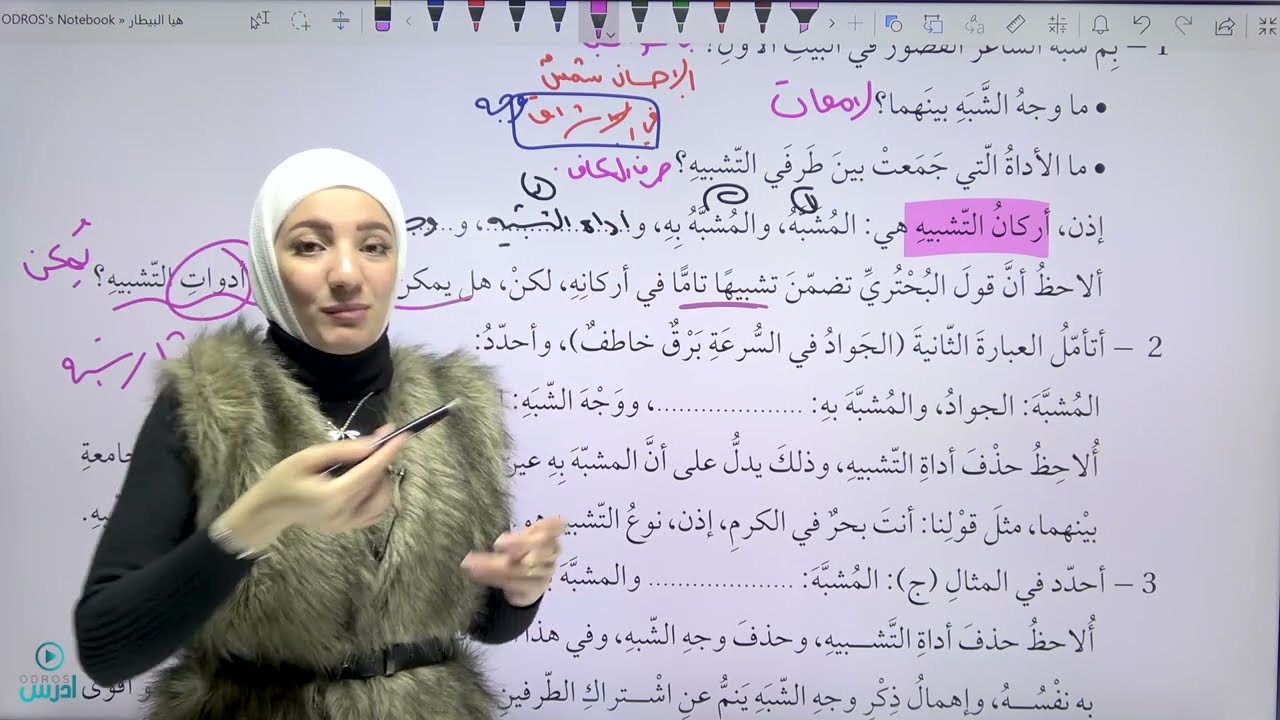 ODROS's Notebook » هيا البيطار
1 – بِمَ شبّهَ الشاعرُ القصورَ في البيتِ الأولِ؟
الإحسان شمسٌ
• ما وجهُ الشَّبَهِ بينَهما؟ لامعات
في الإشراق وجه
• ما الأداةُ الّتي جَمَعتْ بينَ طَرفَيِ التّشبيهِ؟ حرف الكاف
إذن، أركانُ التّشبيهِ هي: المُشبَّهُ، والمُشبَّهُ بِهِ، و اداة التشبيه، و
ألاحظُ أنَّ قولَ البُحْتُريِّ تضمّنَ تشبيهًا تامًّا في أركانِهِ، لكنْ، هل يمكن أدواتِ التّشبيهِ؟ يُمكن
2 – أتأمّلُ العبارةَ الثّانيةَ (الجَوادُ في السُّرعَةِ بَرْقٌ خاطفٌ)، وأحدّدُ:
المُشبَّهَ: الجوادُ، والمُشبَّهَ بهِ: ....................، ووَجْهَ الشّبَهِ:
أُلاحِظُ حذْفَ أداةِ التّشبيهِ، وذلكَ يدلُّ على أنَّ المشبّهَ بِهِ
بيْنهما، مثلَ قوْلِنا: أنتَ بحرٌ في الكرمِ، إذن، نوعُ التّشبيهِ هو
3 – أحدّد في المثالِ (ج): المُشبَّهَ: .................... والمشبَّهَ
أُلاحظُ حذفَ أداةِ التَّشبيهِ، وحذفَ وجهِ الشّبهِ، وفي هذا
به نفْسُهُ، وإهمالُ ذِكْرِ وجهِ الشّبَهِ يَنمُّ عنِ اشْتراكِ الطّرفينِ و أقوى
ODROS
ادرس